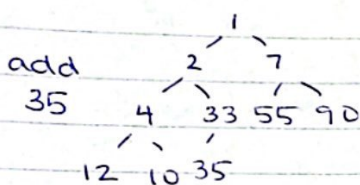 1
add 2 7
35 4 33 55 90
12 10 35